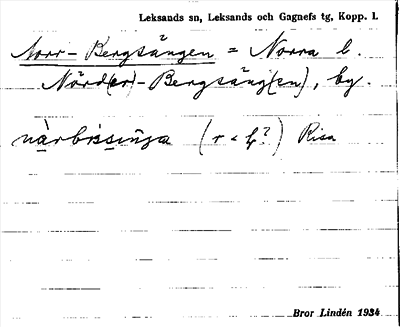 Leksands sn, Leksands och Gagnefs tg, Kopp. l.
Norr-Bergsängen = Norra l.
Nörd(er)-Bergsäng(en), by.
(r < ?) Risa
Bror Lindén 1934